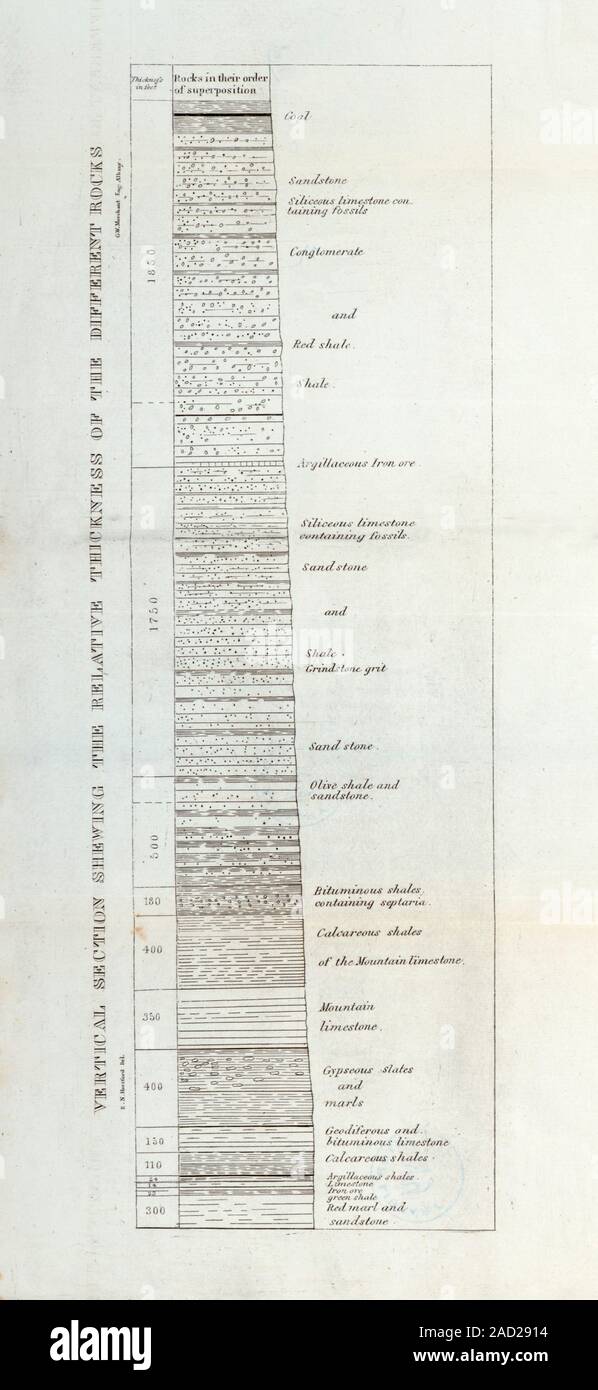 VERTICAL SECTION SHEWING THE RELATIVE THICKNESS OF THE DIFFERENT ROCKS
G.W. Merchant Eng. Albany.
Thickness
in feet
Rocks in their order
of superposition
Coal
Sandstone
Siliceous limestone con-
taining fossils
1850
Conglomerate
and
Red shale.
Shale.
Argillaceous Iron ore
Siliceous limestone
containing fossils.
Sandstone
1750
and
Shale.
Grindstone grit
Sand stone.
Olive shale and
sandstone.
500
180
Bituminous shales,
containing septaria.
400
Calcareous shales
of the Mountain limestone.
350
Mountain
limestone.
400
Gypseous slates
and
marls
E.N. Horsford Del.
130
Geodiferous and
bituminous limestone
110
Calcareous shales.
24
Argillaceous shales.
14
Limestone
Iron ore
green shale
300
Red marl and
sandstone
alamy
Image ID: 2AD2914
www.alamy.com